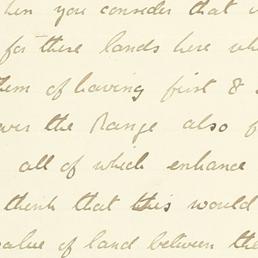 hen you consider that
for these lands here wh
hem of having first &
over the Range also f
all of which enhance
think that this would
value of land between the